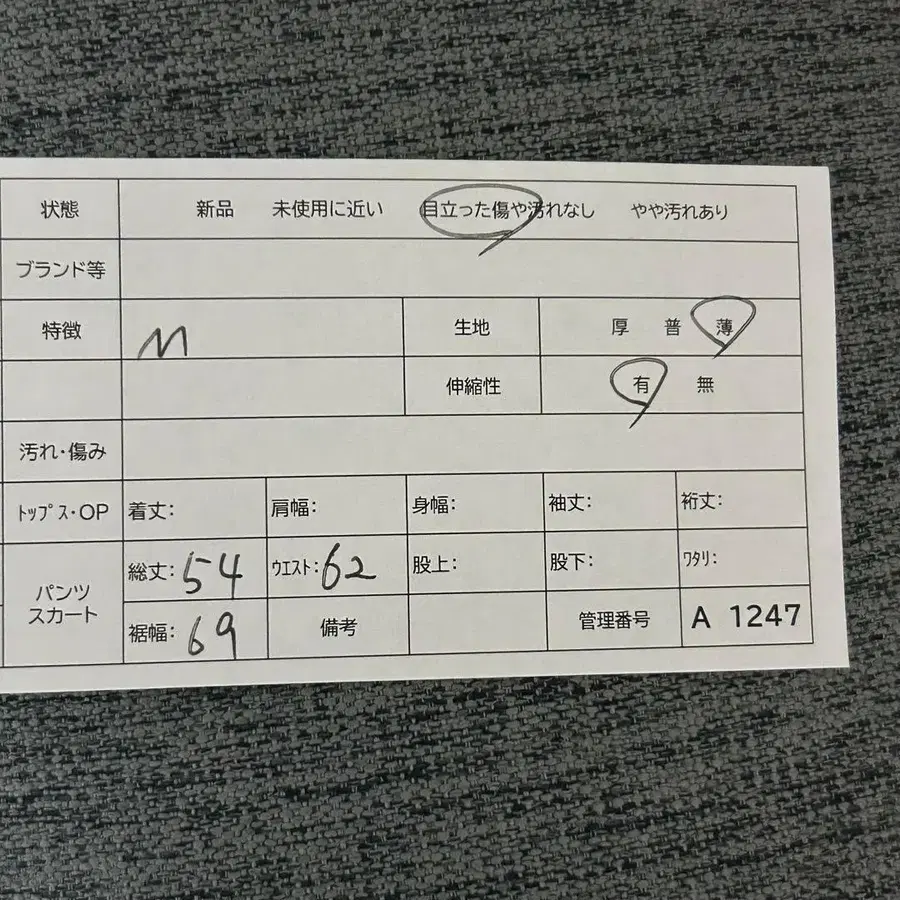 状態 新品 未使用に近い 目立った傷や汚れなし やや汚れあり
ブランド等
特徴 M 生地 厚 普 薄
伸縮性 有 無
汚れ・傷み
ﾄｯﾌﾟｽ・OP 着丈: 肩幅: 身幅: 袖丈: 裄丈:
パンツ スカート 総丈: 54 ｳｴｽﾄ: 62 股上: 股下: ﾜﾀﾘ:
裾幅: 69 備考 管理番号 A 1247